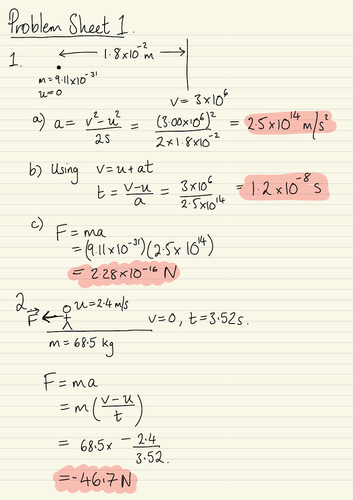 Problem Sheet 1.
1.
1.8x10⁻² m
m=9.11x10⁻³¹
u=0
v = 3x10⁶
a) a = (v²-u²)/2s = (3.00x10⁶)²/(2x1.8x10⁻²) = 2.5x10¹⁴ m/s²
b) Using v=u+at
t = (v-u)/a = 3x10⁶/2.5x10¹⁴ = 1.2x10⁻⁸ s
c) F = ma
= (9.11x10⁻³¹)(2.5x10¹⁴)
= 2.28x10⁻¹⁶ N
2.
F u=2.4 m/s
v=0, t=3.52s.
m = 68.5 kg
F = ma
= m((v-u)/t)
= 68.5x -2.4/3.52.
= -46.7 N